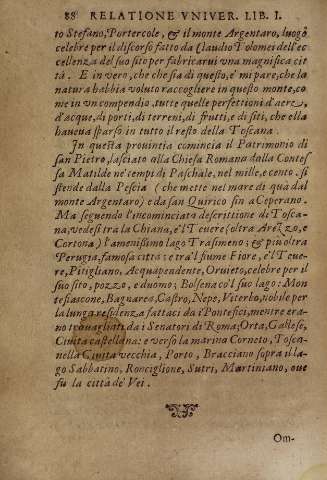 88 RELATIONE VNIVER. LIB. I.
to Stefano, Portercole, & il monte Argentaro, luogo
celebre per il discorso fatto da Claudio Tolomei dell'ec
cellenza del suo sito per fabricarui vna magnifica cit
tà. E in vero, che che sia di questo, e' mi pare, che la
natura habbia voluto raccogliere in questo monte, co
me in vn compendio, tutte quelle perfettioni d'aere,
d'acque, di porti, di terreni, di frutti, e di siti, che ella
haueua sparso in tutto il resto della Toscana.
In questa prouintia comincia il Patrimonio di
san Pietro, lasciato alla Chiesa Romana dalla Contes
sa Matilde ne' tempi di Paschale, nel mille, e cento. si
stende dalla Pescia (che mette nel mare di quà dal
monte Argentaro) e da san Quirico sin a Ceperano.
Ma seguendo l'incominciata descrittione di Tosca-
na, vedesi tra la Chiana, e'l Teuere (oltra Arezzo, e
Cortona) l'amenissimo lago Trasimeno; & più oltra
Perugia, famosa città; e tra'l fiume Fiore, e'l Teue-
re, Pitigliano, Acquapendente, Oruieto, celebre per il
suo sito, pozzo, e duomo; Bolsena co'l suo lago: Mon
tefiascone, Bagnarea, Castro, Nepe, Viterbo, nobile per
la lunga residenza fattaci da i Pontefici, mentre era-
no trouagliati da i Senatori di Roma; Orta, Galese,
Ciuita castellana: e verso la marina Corneto, Tosca-
nella Ciuita vecchia, Porto, Bracciano sopra il la-
go Sabbatino, Ronciglione, Sutri, Martiniano, oue
fù la città de' Vei.
Om-